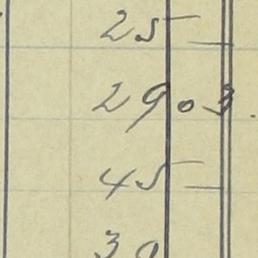 25 —
29 03.
45 —
30